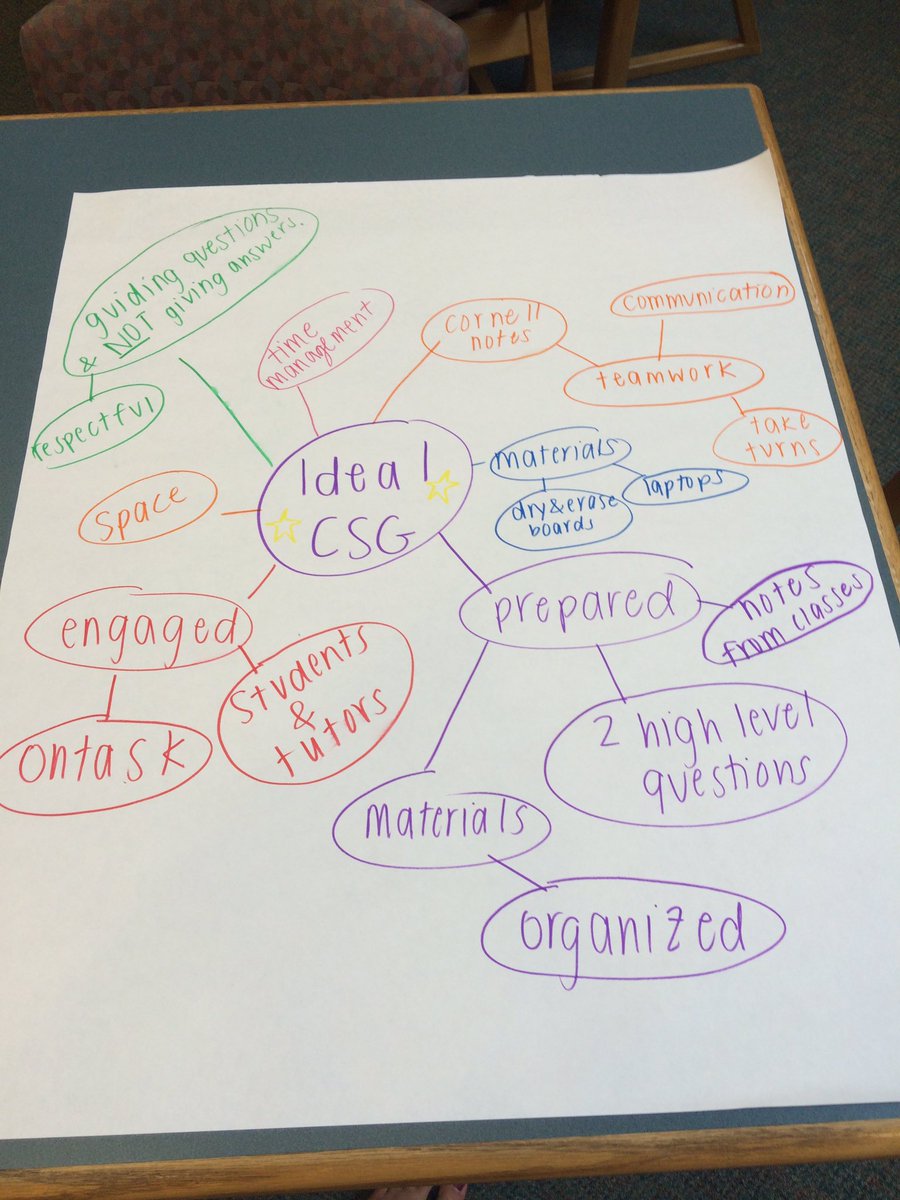 guiding questions
& NOT giving answers.
respectful
time
management
cornell
notes
communication
teamwork
take
turns
Ideal
CSG
materials
dry&erase
boards
laptops
space
engaged
ontask
students
&
tutors
prepared
notes
from classes
2 high level
questions
materials
organized